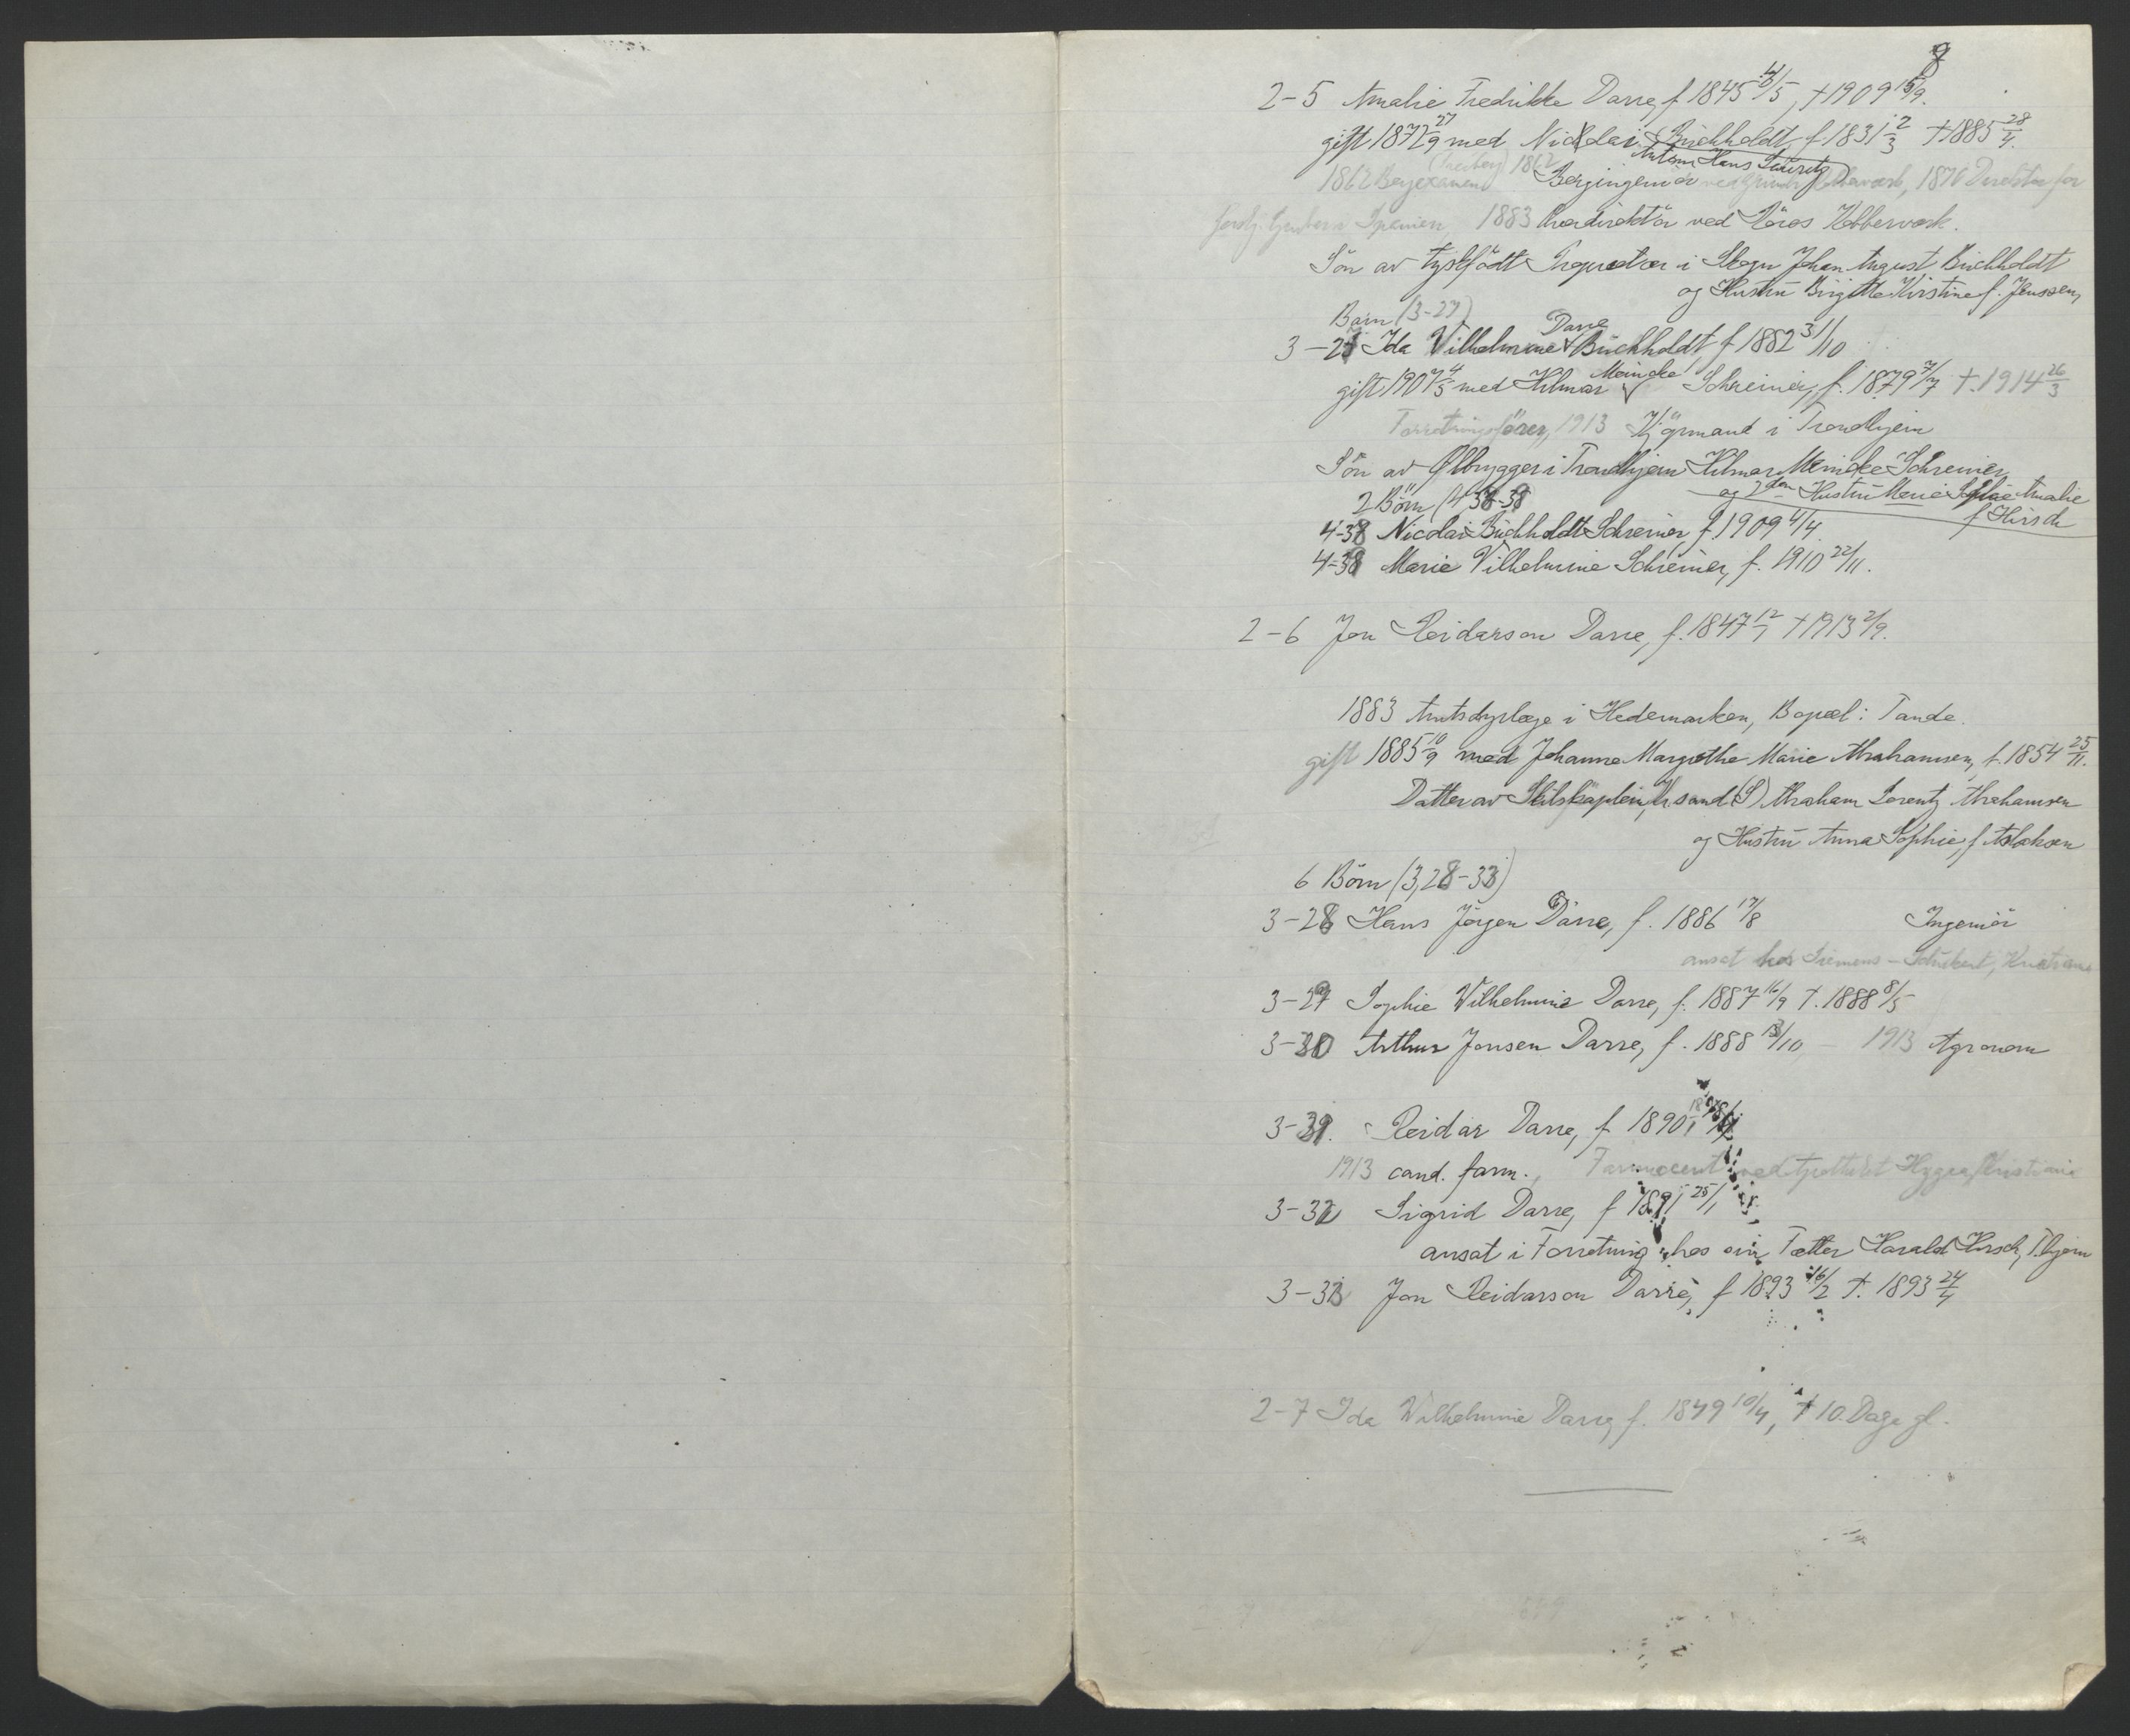 9
2-5 Amalie Fredrikke Darre, f 1845 16/5, †1909 15/9.
gift 1872 27/9 med Nicolai Buchholdt, f. 1831 2/3 †1885 28/4.
Anton Hans Lauritz
(Freiberg) 1862
1862 Bergexamen Bergingeniör ved 1870 Direktör for
1883 Overdirektör ved Röros Kobberverk.
Sön av tyskfödt i Skogn Johan August Buchholdt
og Hustru Birgitte Kirstine f. Jenssen,
Barn (3-27)
3-27 Ida Vilhelmine Darre Buchholdt, f 1882 31/10
gift 1907 4/5 med Hilmar Meincke Schreiner, f. 1879 7/7 †.1914 26/3
Forretningsförer, 1913 Kjöpmand i Trondhjem
Sön av Ølbrygger i Trondhjem Hilmar Meincke Schreiner
og 2den Hustru Marie Sophie Amalie
f Hirsch
2 Börn (4 38-38
4-38 Nicolai Buchholdt Schreiner, f. 1909 4/4
4-38 Marie Vilhelmine Schreiner, f. 1910 22/11.
2-6 Jon Reidarson Darre, f. 1847 12/7 †1913 2/9.
1883 Amtsdyrlæge i Hedemarken, Bopæl: Tande.
gift 1885 10/9 med Johanne Margrethe Marie Abrahamsen, f. 1854 25/11.
Datter av Skibskaptein, Kr.sand (S) Abraham Lorentz Abrahamsen
og Hustru Anna Sophie, f. Aslaksen
6 Börn (3,28-33)
3-28 Hans Jörgen Darre, f. 1886 17/8 Ingeniör
ansat hos Siemens-Schuckert, Kristiania
3-29 Sophie Wilhelmine Darre, f. 1887 16/9 †. 1888 8/5
3-30 Arthur Jonsen Darre, f. 1888 18/10, — 1913 Agronom
3-31. Reidar Darre, f 1890
1913 cand. farm., Farmaceut ved Apotheket Hygea, Kristiania
3-32 Sigrid Darre, f 1891 25/1
ansat i Forretning hos sin Fætter Harald Hirsch, T.hjem
3-33 Jon Reidarson Darre, f 1893 16/2 †. 1893 24/4
2-7 Ida Wilhelmine Darre, f. 1849 10/4, † 10. Dage gl.